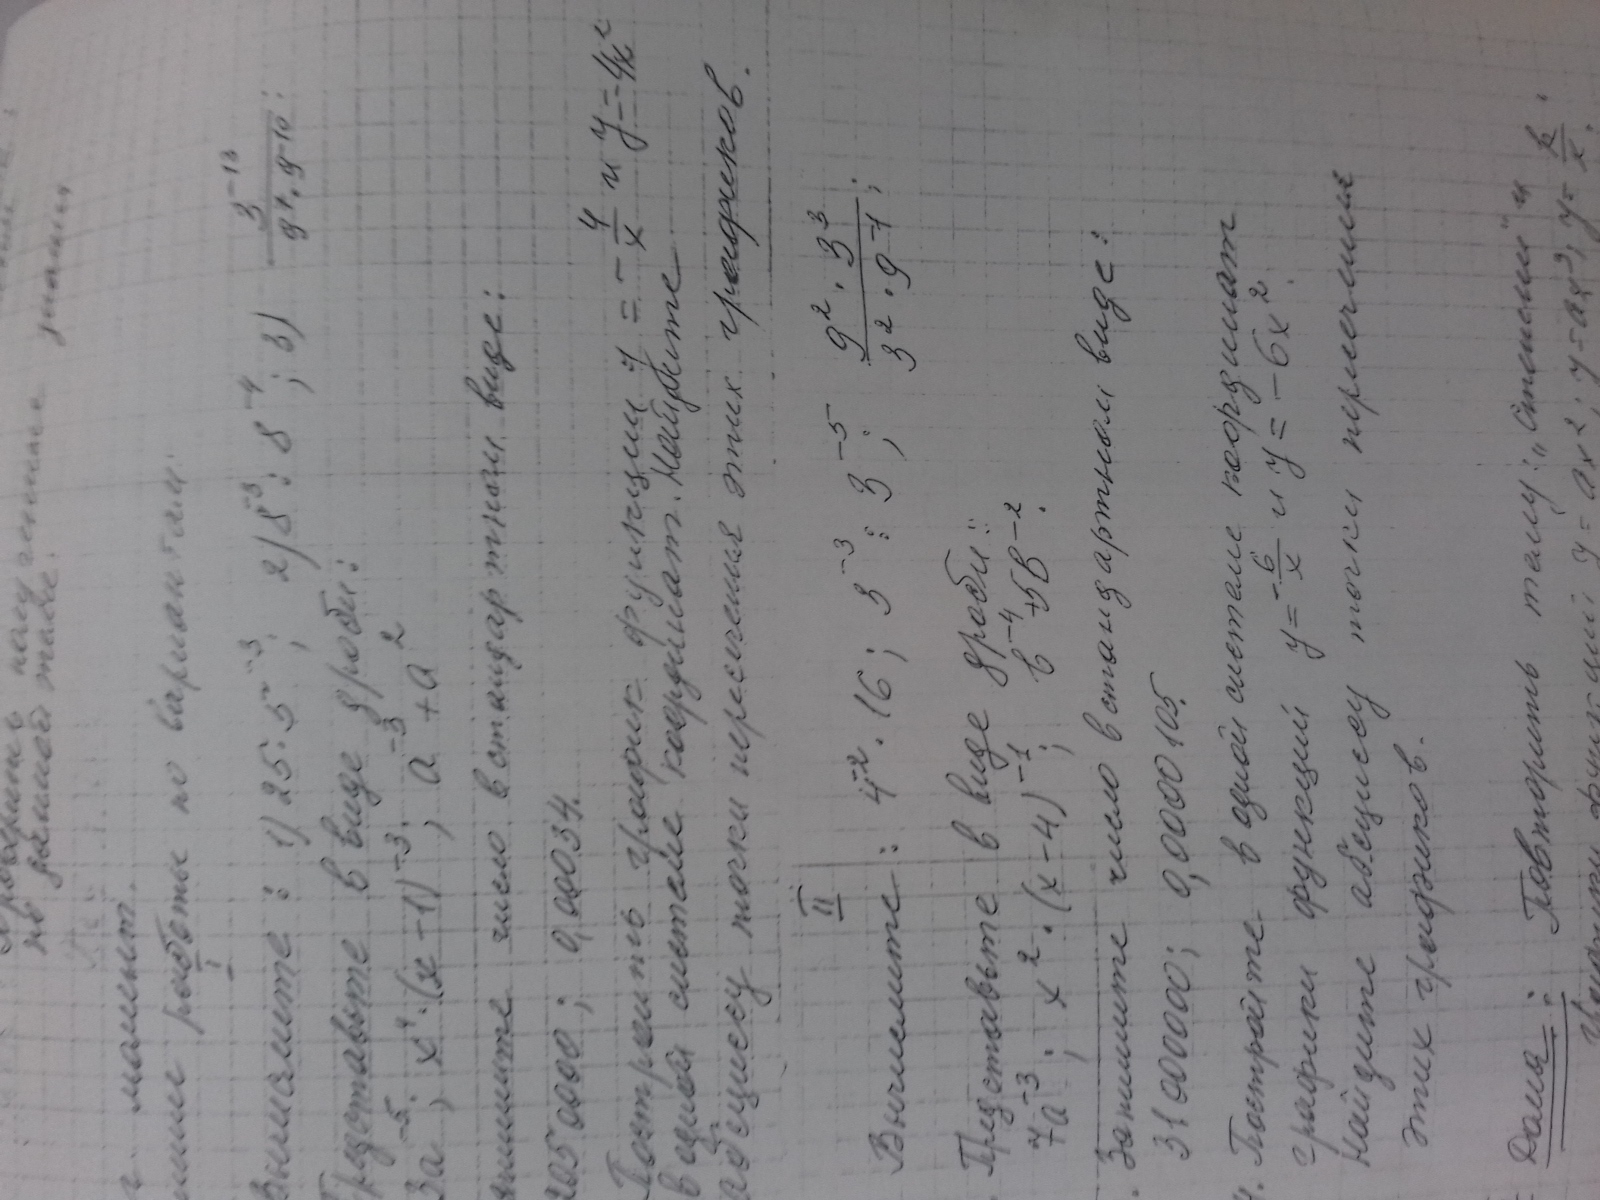 полученные знания
на данном этапе.
момент.
работы по вариантам:
I
Вычислите: 1) 25 : 5⁻³; 2) 8⁻³ : 8⁻⁴; 3) 3⁻¹³ / 9⁴ · 9⁻¹⁰ :
Представьте в виде дроби:
3a⁻⁵; x⁴ · (x − 1)⁻³; a⁻³ + a²
число в стандартном виде:
0,00034.
Построить график функции y = − 4/x и y = −4x²
в одной системе координат. Найдите
абсциссу точки пересечения этих графиков.
II
Вычислите: 4⁻² · 16; 3⁻³ : 3⁻⁵; 9² · 3³ / 3² · 9⁻¹;
Представьте в виде дроби:
7a⁻³; x² · (x − 4)⁻¹; b⁻⁴ + 5b⁻².
Запишите число в стандартном виде:
31000000; 0,0000105.
4. Постройте в одной системе координат
графики функций y = − 6/x и y = −6x².
Найдите абсциссу точки пересечения
этих графиков.
Дома: Повторить тему: „Степени" и
функций y = ax²; y = ax³; y = k/x.